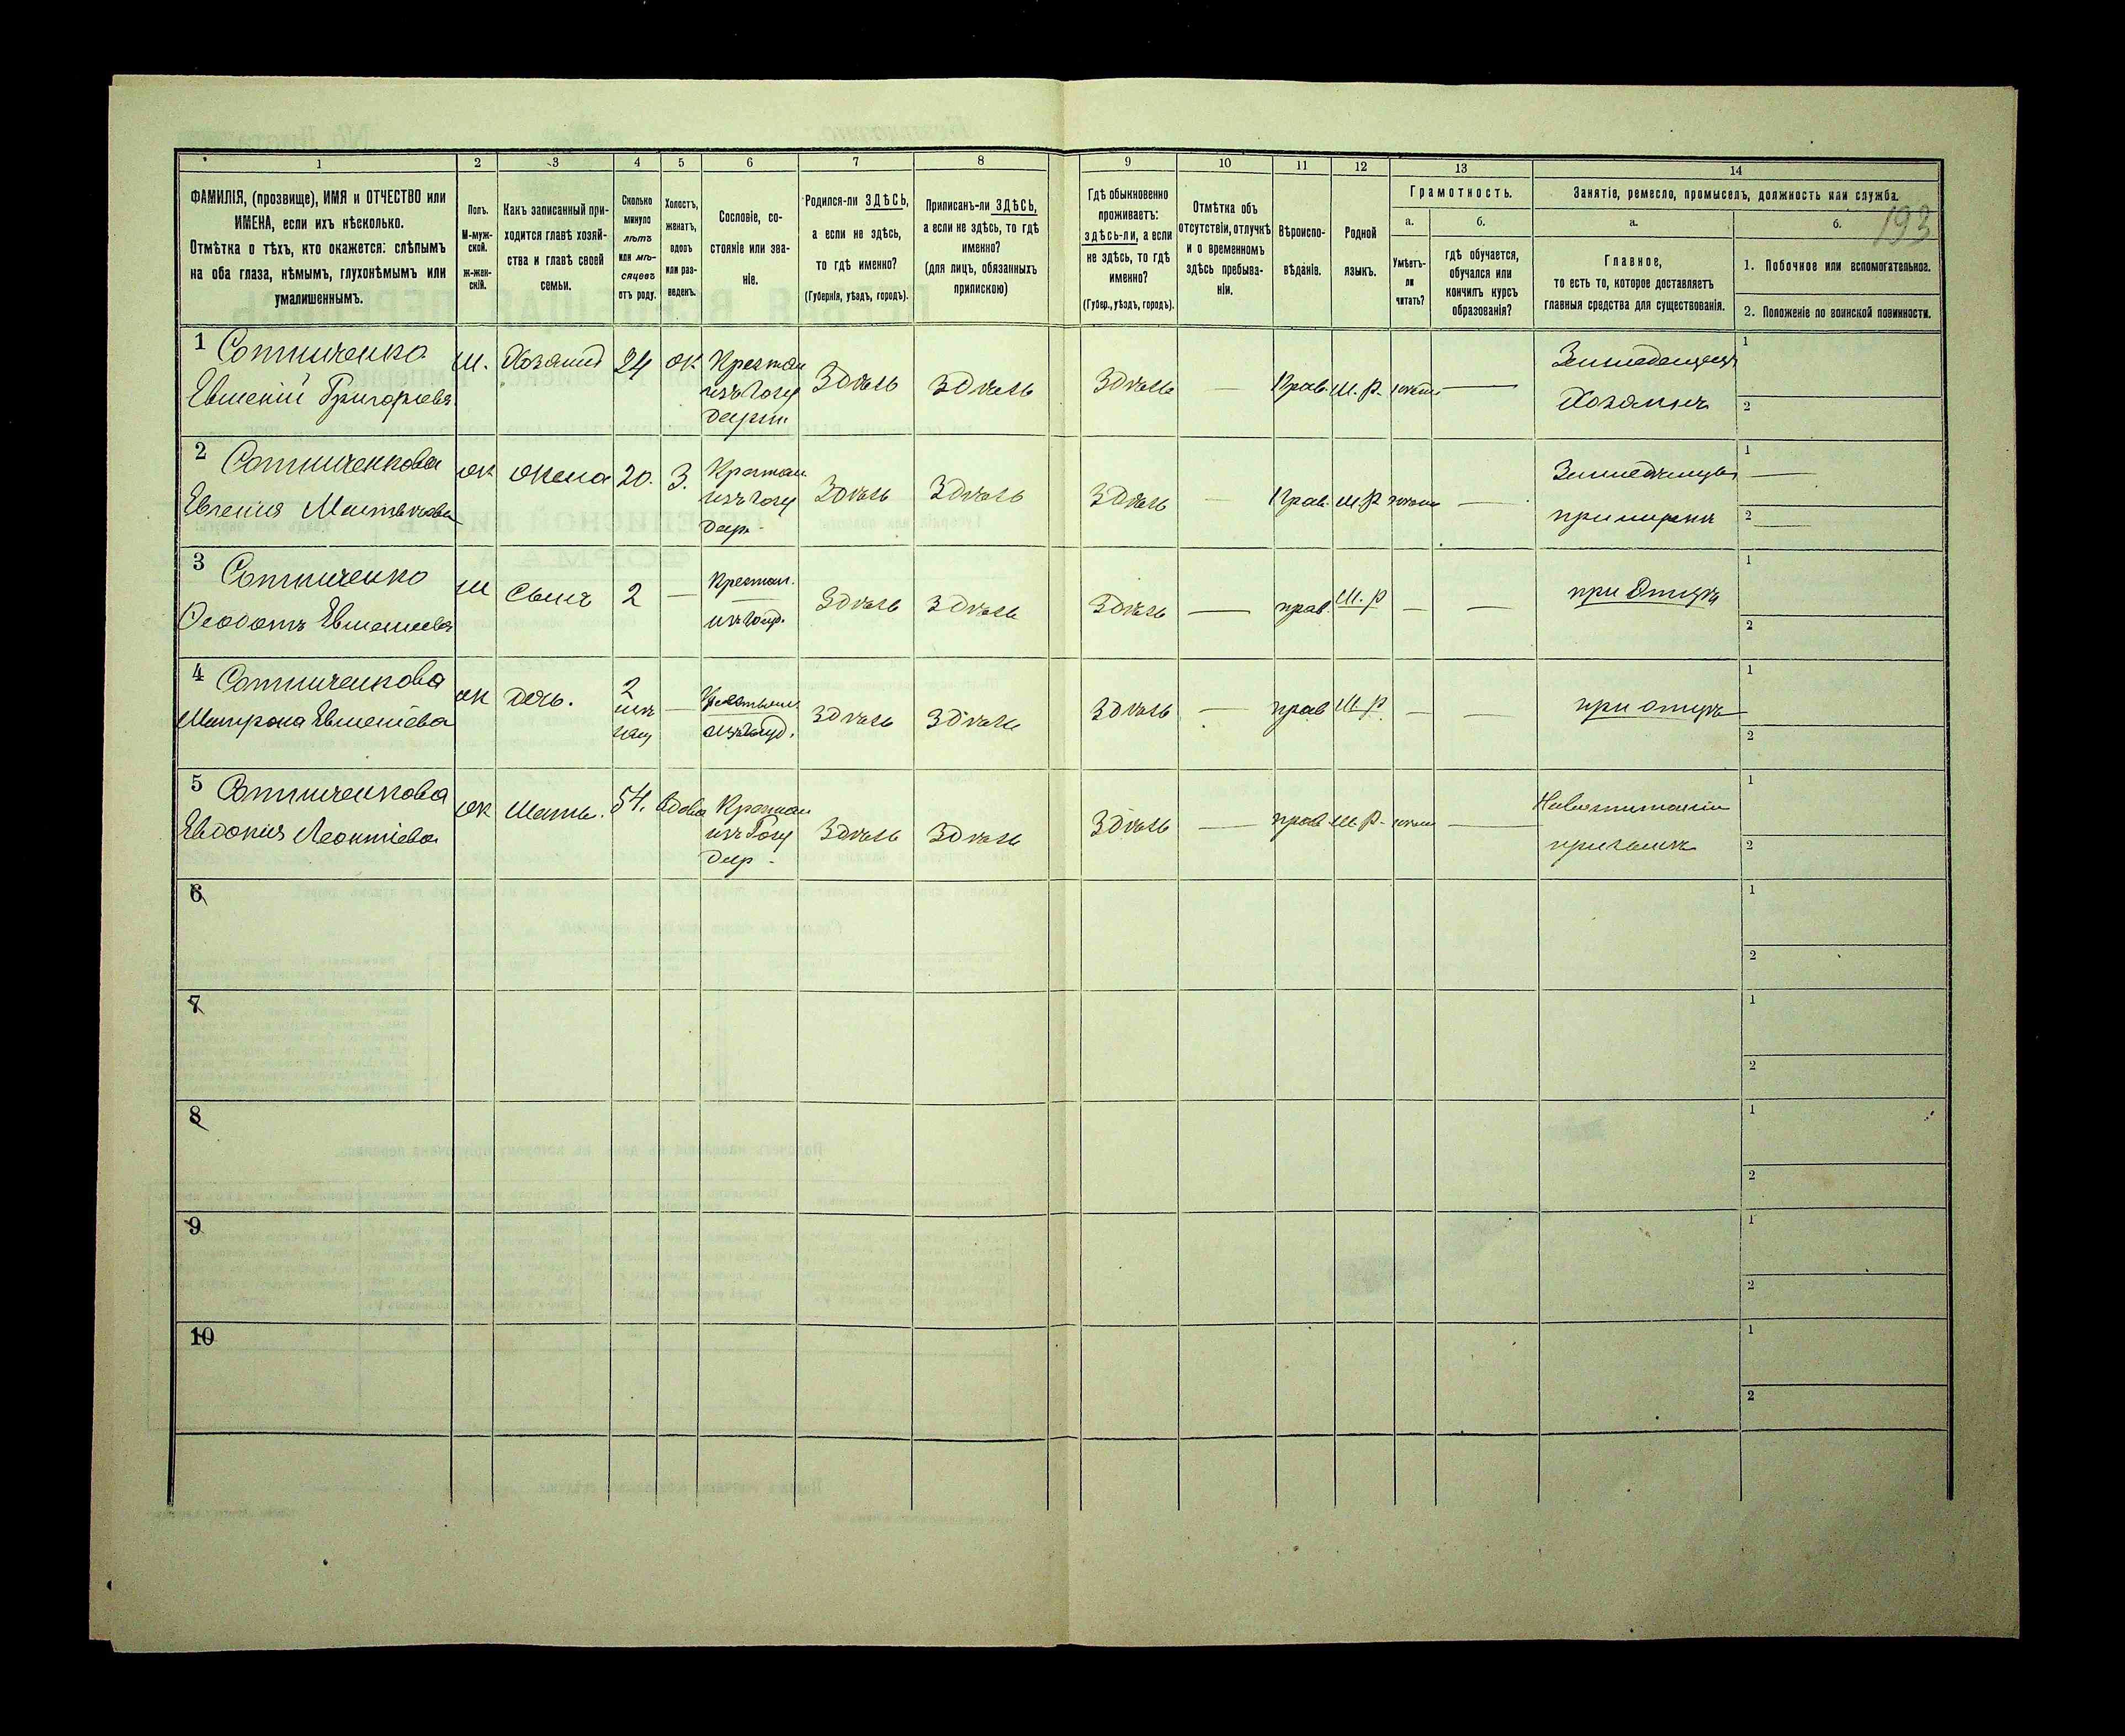 193
1 2 3 4 5 6 7 8 9 10 11 12 13 14
ФАМИЛІЯ, (прозвище), ИМЯ и ОТЧЕСТВО или
ИМЕНА, если ихъ нѣсколько.
Отмѣтка о тѣхъ, кто окажется: слѣпымъ
на оба глаза, нѣмымъ, глухонѣмымъ или
умалишеннымъ.
Полъ.
М-муж-
ской.
Ж-жен-
скій.
Какъ записанный при-
ходится главѣ хозяй-
ства и главѣ своей
семьи.
Сколько
минуло
лѣтъ
или мѣ-
сяцевъ
отъ роду.
Холостъ,
женатъ,
вдовъ
или раз-
веденъ.
Сословіе, со-
стояніе или зва-
ніе.
Родился-ли ЗДѢСЬ,
а если не здѣсь,
то гдѣ именно?
(Губернія, уѣздъ, городъ).
Приписанъ-ли ЗДѢСЬ,
а если не здѣсь, то гдѣ
именно?
(для лицъ, обязанныхъ
припискою)
Гдѣ обыкновенно
проживаетъ:
здѣсь-ли, а если
не здѣсь, то гдѣ
именно?
(Губер., уѣздъ, городъ).
Отмѣтка объ
отсутствіи, отлучкѣ
и о временномъ
здѣсь пребыва-
ніи.
Вѣроиспо-
вѣданіе.
Родной
языкъ.
Грамотность.
а.
Умѣетъ-
ли
читать?
б.
гдѣ обучается,
обучался или
кончилъ курсъ
образованія?
Занятіе, ремесло, промыселъ, должность или служба.
а.
Главное,
то есть то, которое доставляетъ
главныя средства для существованія.
б.
1. Побочное или вспомогательное.
2. Положеніе по воинской повинности.
1 Сотниченко
Евменій Григорьевъ
м. Хозяинъ 24 ж. Крестьян
изъ Госу
дарст
здѣсь здѣсь здѣсь — Прав. М.Р. —
Хозяинъ
1
2
2 Сотниченкова
Евгенія Матвѣева
ж жена 20. З. Крестьян
изъ Госу
дар.
здѣсь здѣсь здѣсь — Прав. М.Р —
при мужѣ
1 —
2 —
3 Сотниченко
Ѳеодотъ Евменіевъ
м Сынъ 2 — Крестьян.
изъ Госуд.
здѣсь здѣсь здѣсь — прав. М.Р — —
при Отцѣ
1
2
4 Сотниченкова
Матрона Евменіева
ж дочь. 2
мѣ
сяц
— Крестьян
изъ Госуд.
здѣсь здѣсь здѣсь — прав М.Р. — —
при отцѣ
1
2
5 Сотниченкова
Евдокія Леонтіева
ж Мать. 54. вдова Крестьян
изъ Госу
дар.
здѣсь здѣсь здѣсь — прав М.Р. —
На пропитаніи
при сынѣ
1
2
6
1
2
7
1
2
8
1
2
9
1
2
10
1
2